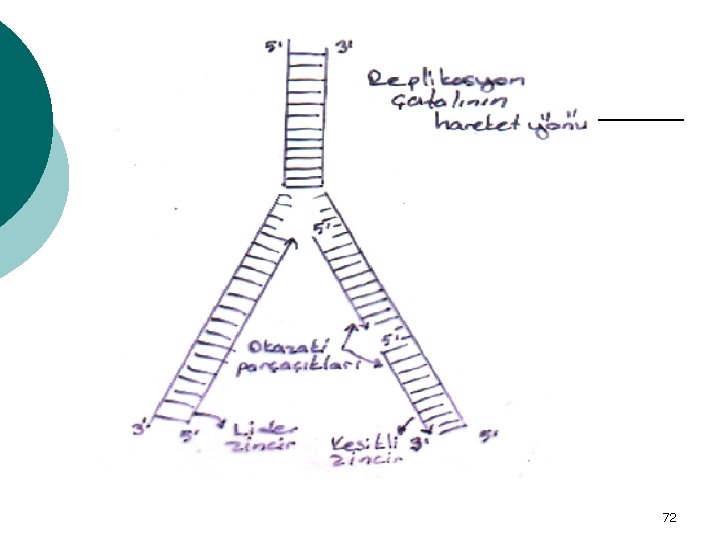 5' 3'
Replikasyon
çatalının
hareket yönü
5'
5'
Okazaki
parçaçıkları
3' 5' Lider
zincir
Kesikli
zincir
3' 5'
72